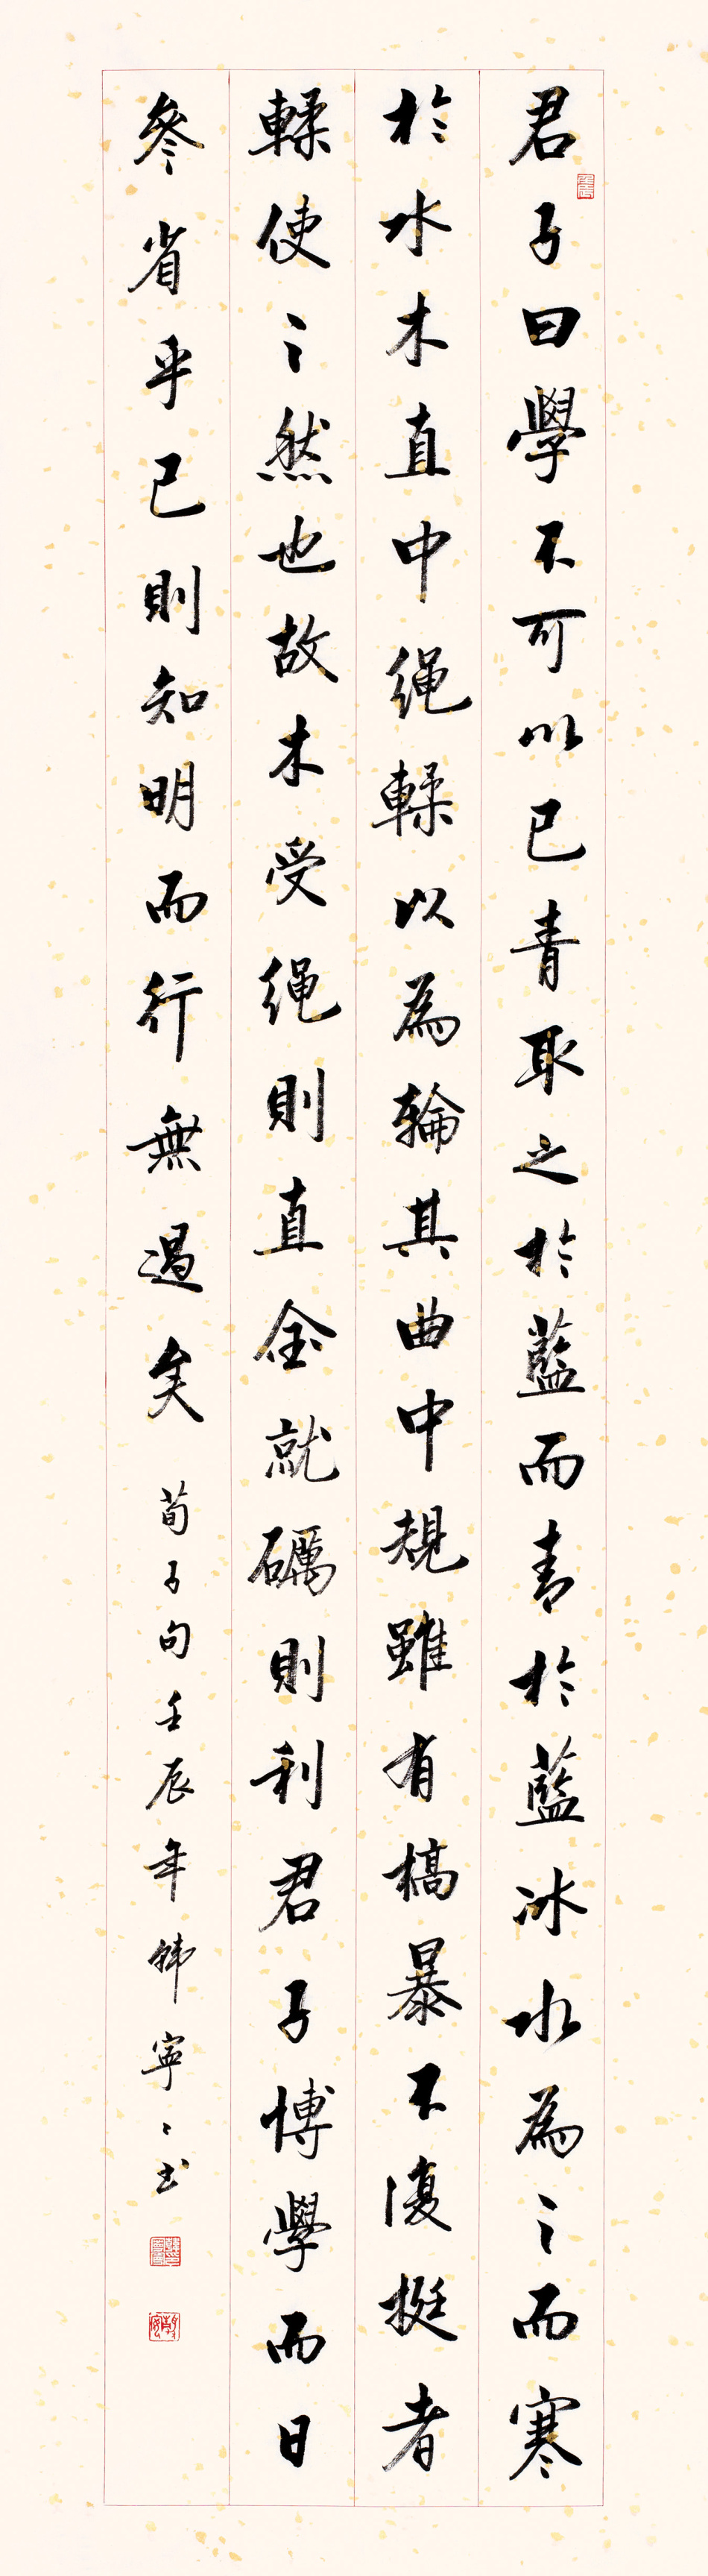 君子曰學不可以已青取之於藍而青於藍冰水為之而寒
於水木直中绳輮以為輪其曲中規雖有槁暴不復挺者
輮使之然也故木受绳則直金就礪則利君子博學而日
參省乎己則知明而行無過矣 荀子句 壬辰年 韩寧寧书